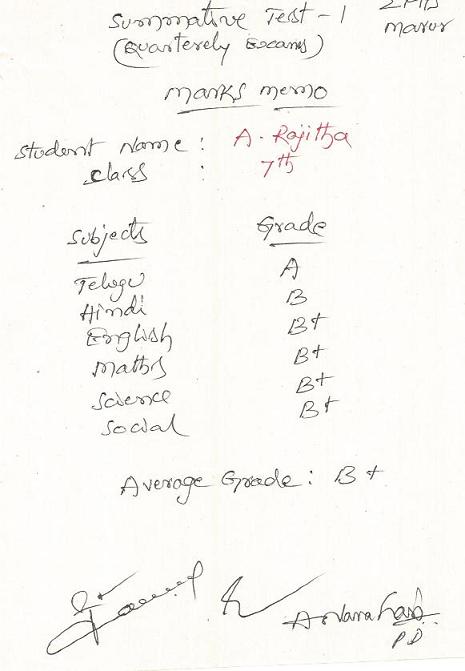 Summative Test - 1
(Quarterely Exams)
marur
Marks memo
Student Name : A. Rajitha
Class : 7th
Subjects Grade
Telugu A
Hindi B
English B+
Maths B+
Science B+
Social B+
Average Grade : B+
P D